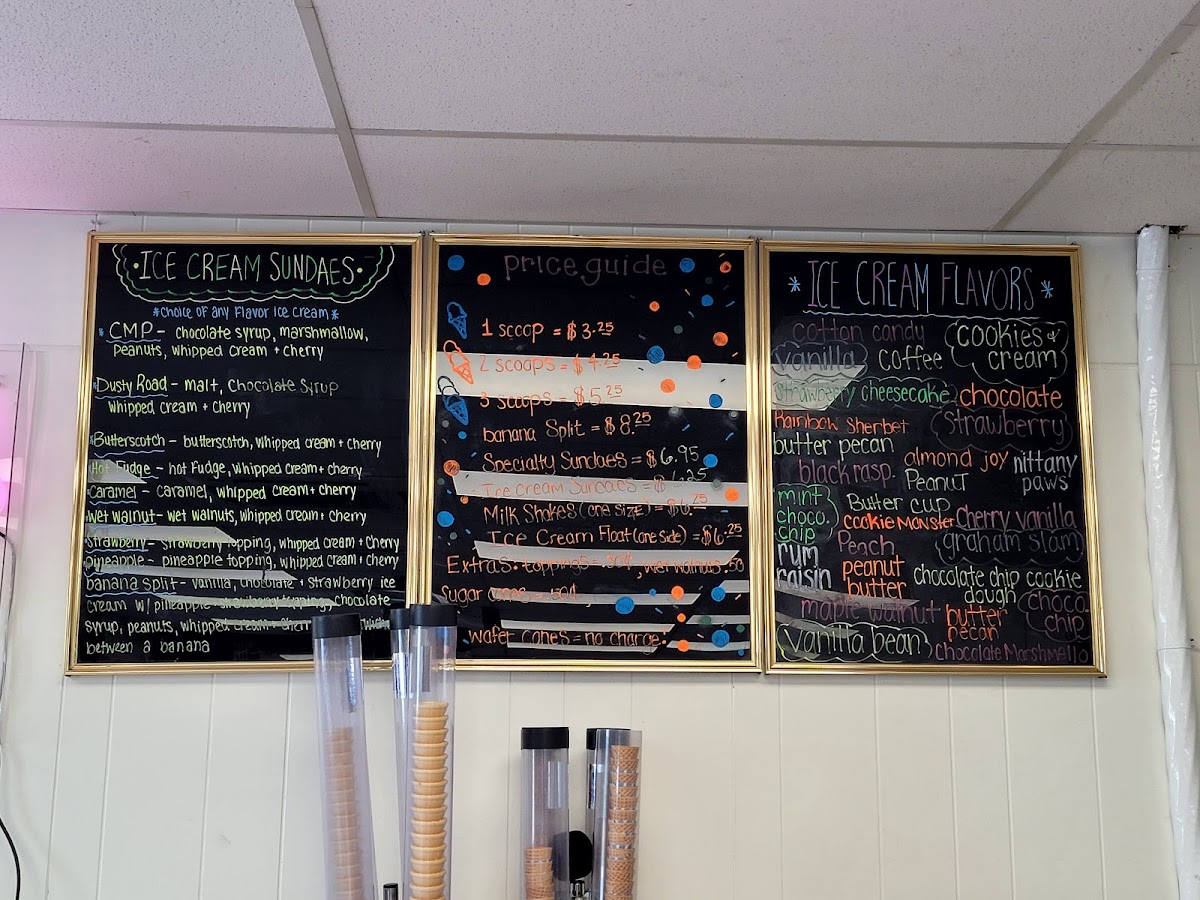 ICE CREAM SUNDAES
*choice of any Flavor ice cream*
CMP - chocolate syrup, marshmallow,
Peanuts, whipped cream + cherry
Dusty Road - malt, chocolate syrup
whipped cream + cherry
Butterscotch - butterscotch, whipped cream + cherry
Hot Fudge - hot fudge, whipped cream + cherry
Caramel - caramel, whipped cream + cherry
Wet walnut - wet walnuts, whipped cream + cherry
Strawberry - strawberry topping, whipped cream + cherry
pineapple - pineapple topping, whipped cream + cherry
banana split - vanilla, chocolate + strawberry ice
cream w/ pineapple strawberry topping, chocolate
syrup, peanuts, whipped cream + cherry
between a banana
price guide
1 scoop = $3.25
2 scoops = $4.25
3 scoops = $5.25
banana Split = $8.25
Specialty Sundaes = $6.95
Ice cream Sundaes = $6.25
Milk Shakes (one size) = $6.25
Ice Cream Float (one side) = $6.25
Extras: toppings = 50¢, wet walnuts .50
Sugar cones = 50¢
wafer cones = no charge
*ICE CREAM FLAVORS*
cotton candy
cookies & cream
vanilla
coffee
strawberry cheesecake
chocolate
Rainbow Sherbet
Strawberry
butter pecan
almond joy
nittany paws
black rasp.
Peanut Butter cup
mint choco. chip
cookie Monster
cherry vanilla
graham slam
rum raisin
Peach
peanut butter
chocolate chip cookie dough
choco. chip
maple walnut
butter pecan
vanilla bean
chocolate Marshmello